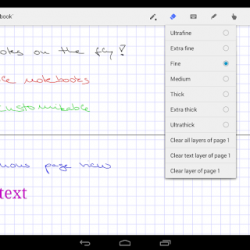 book
on the fly!
notebooks
customizable
ous page now
text
Ultrafine
Extra fine
Fine
Medium
Thick
Extra thick
Ultrathick
Clear all layers of page 1
Clear text layer of page 1
Clear layer of page 1